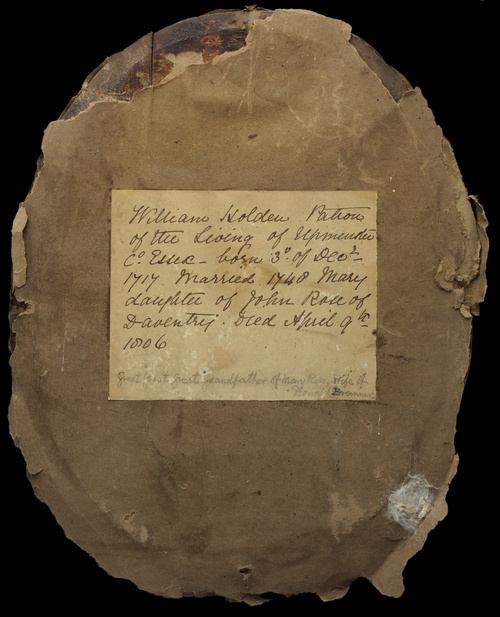 William Holden Patron
of the Living of Upminster
Co Essex - born 3d. of Decr.-
1717 Married 1748 Mary
daughter of John Rose of
Daventry. Died April 9th.
1806
Great Great Great Grandfather of Mary Rose, Wife of